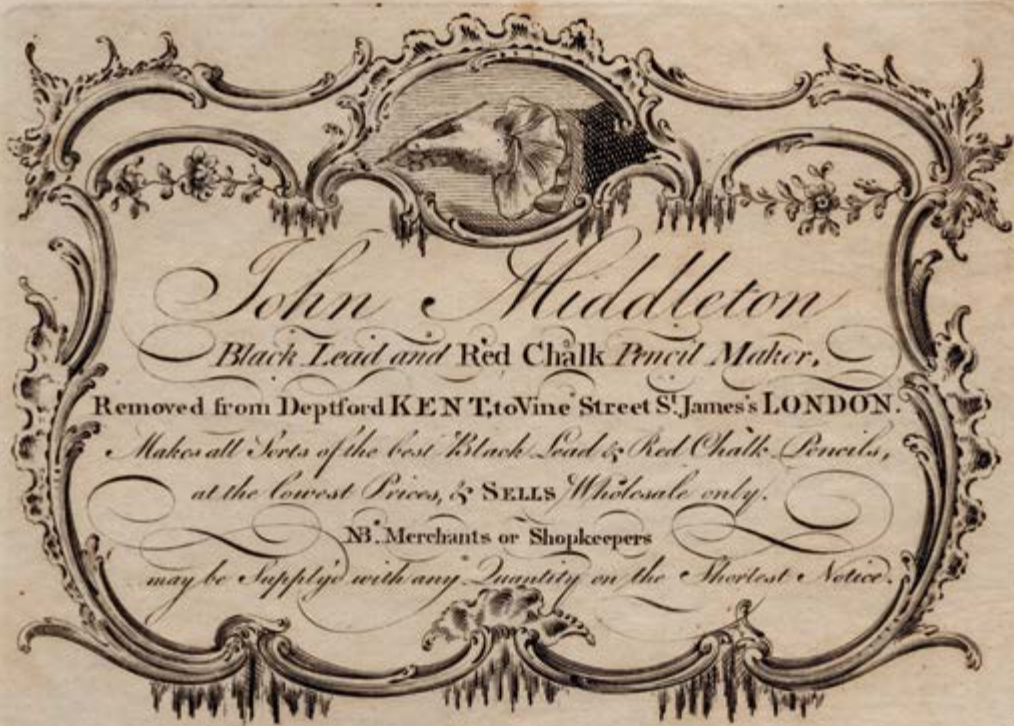 John Middleton
Black Lead and Red Chalk Pencil Maker,
Removed from Deptford KENT, to Vine Street St. James's LONDON.
Makes all Sorts of the best Black Lead & Red Chalk Pencils,
at the lowest Prices, & SELLS Wholesale only.
NB. Merchants or Shopkeepers
may be Supply'd with any Quantity on the Shortest Notice.